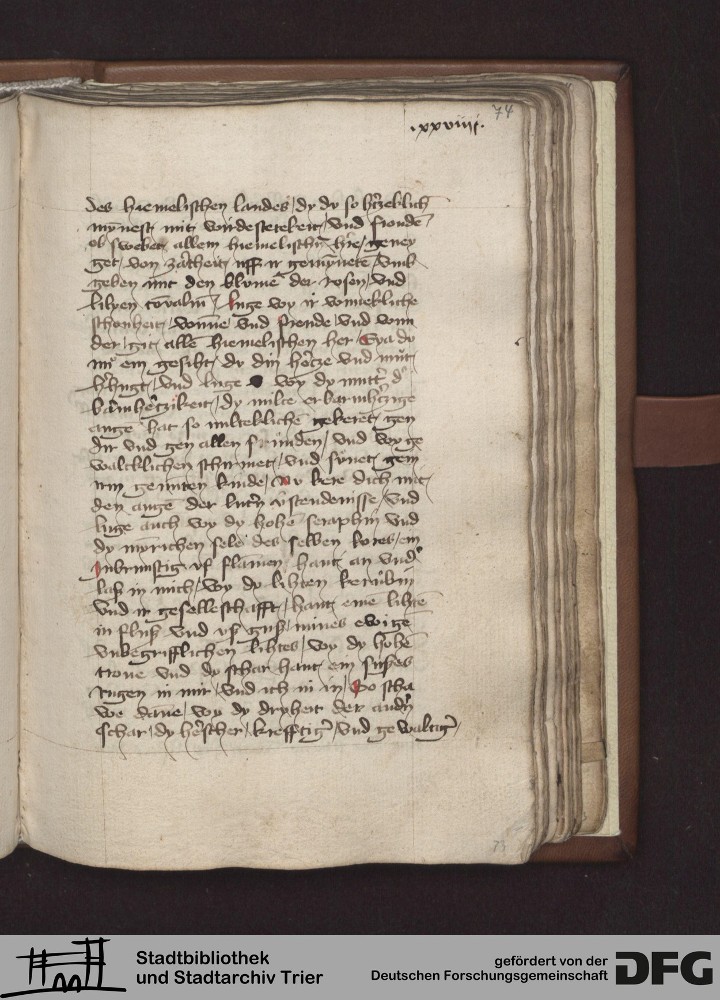 74
.xxviiij.
des hiemelischen landes / dy dy so hertzeklich
mynest mit wirdeklekeit / vnd froiden
ob swebet allem hiemelischem her / geney
get / von zartheit / vff ir gemynete / vmb
geben mit den blumen der rosen / vnd
lilyen / luge wy ir wonnekliche
schonheit / wonne vnd froide / vnd wun
der / git allem hiemelischen her Eya du
nu ein gesiht / dy din hertze vnd mut
erhugt / vnd luge wy dy mutter der
barmhertzikeit / dy milte erbarmhertzige
augen hat so milteklichen gekeret / gen
dir vnd gen allen sundern / vnd wy ge
walteklichen schirmet / vnd sunet gein
irm geminten kinde / Nu kere dich mit
den augen der lutern verstendenisse / vnd
luge auch wy dy hohen seraphin vnd
dy mynrichen sele des selben kores / ein
Inbrunstig vf flammen / hant an vnder
laß in mich / wy dy lihten kerubin
vnd ir geselleschafft / hant einen lihten
in fluß vnd vß guß / mines ewigen
vnbegrifflichen lihtes / wy dy hohen
trone vnd dy schar hant / ein sußes
rugen in mir / vnd ich in in / So scha
we danne / wy dy dryheit der andern
schar / dy herscher / krefftiger / vnd gewaltiger /
73
Stadtbibliothek
und Stadtarchiv Trier
gefördert von der
Deutschen Forschungsgemeinschaft
DFG